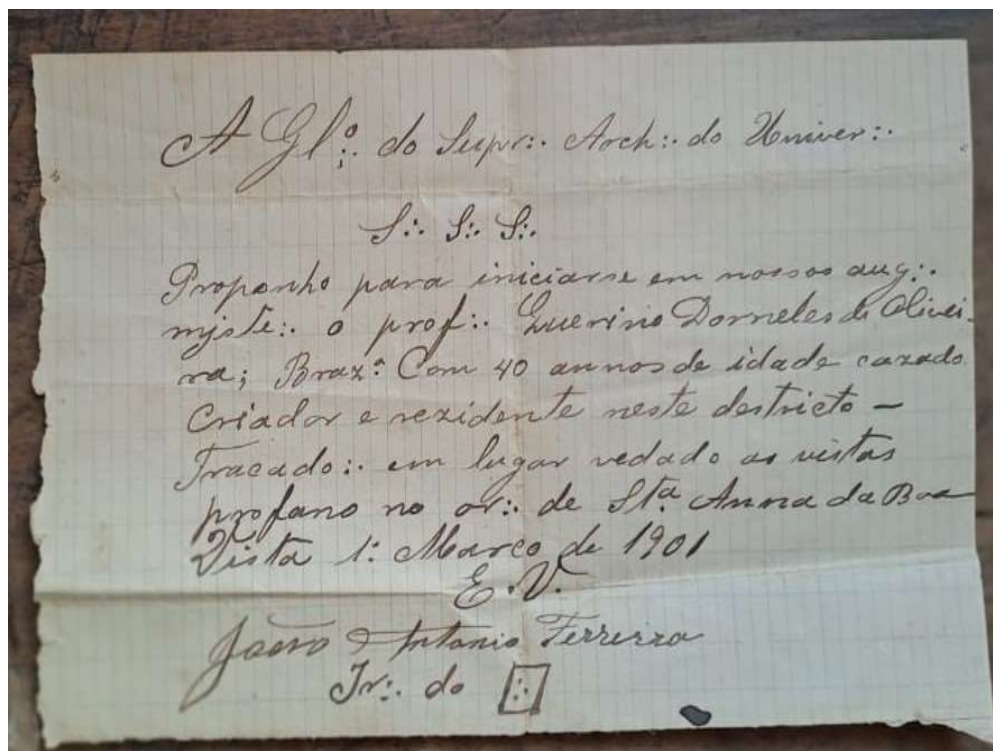 A Gl∴ do Supr∴ Arch∴ do Univer∴
S∴ S∴ S∴
Proponho para iniciarse em nossos aug∴
myste∴ o prof∴ Guerino Dorneles de Olivei-
ra; Braz.º Com 40 annos de idade cazado
Criador e rezidente neste destricto –
Tracado∴ em lugar vedado as vistas
profano no or∴ de Sta Anna da Boa
Vista 1º Março de 1901
E.V.
João Antonio Ferreira
Ir∴ do ∴